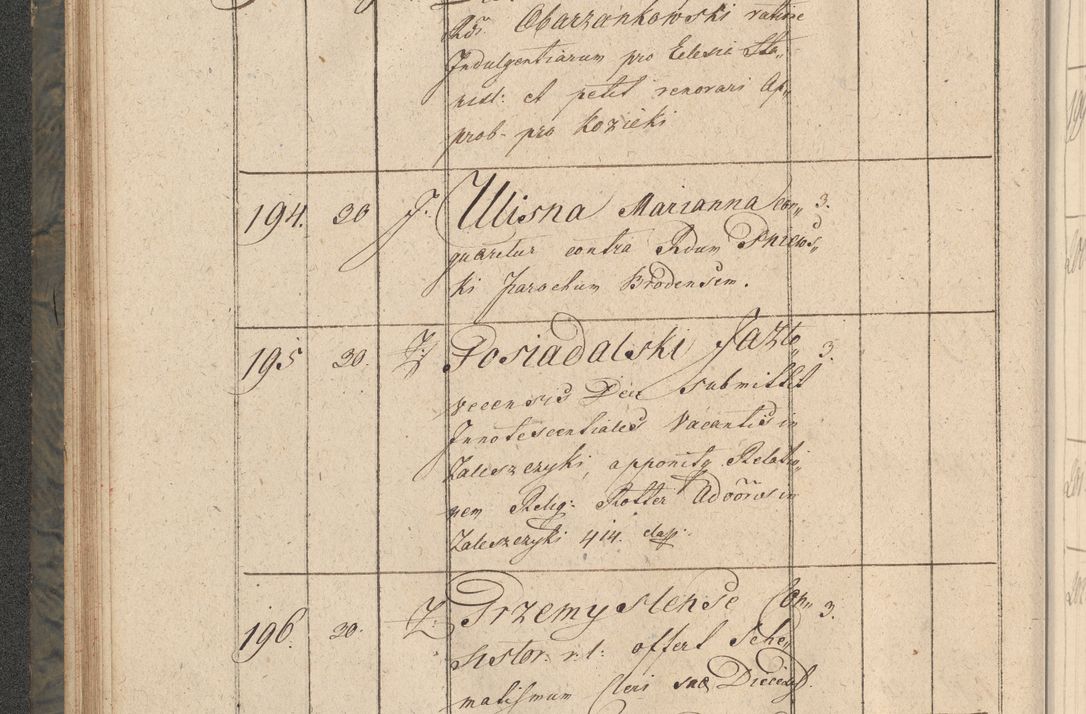 Rdi Obarzankowski ratine
Indulgentiarum pro Eclesia Sta„
nisl: et petit renovari Ap„
prob. pro Kozicki
194. 20 J. Ulisna Marianna con„ 3.
quaeritur contra Rdum Sniews„
ki Parochum Brodensem.
195 30. Z. Posiadalski Jazlo„ 3.
vecensis Dec submittit
Innotescentiales Vacantis in
Zaleszczyki, apponitq Relatio„
nem Relig: Rotter Adōōris in
Zaleszczyki 414. class.
196. 30. Z. Przemyslense Con„ 3.
sistor. r. l. offert Sche„
matismum Cleri suae Dieceds